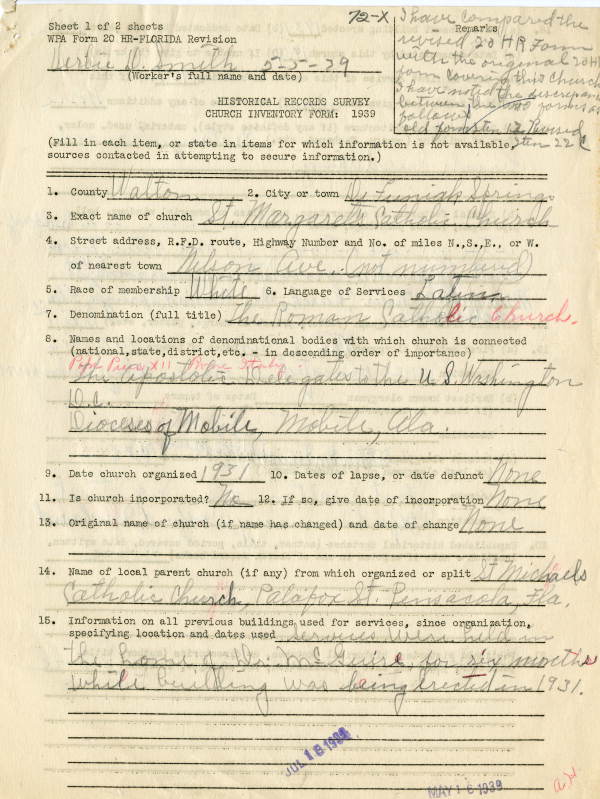 Sheet 1 of 2 sheets
WPA Form 20 HR-FLORIDA Revision
72-X
Remarks
I have compared the
revised 20 HR Form
with the original 20 HR
form covering this church
I have noted the discrepancy
between the two forms as
follows
old form Item 12 Revised
Item 22
D. Smith 5-5-39
(Worker's full name and date)
HISTORICAL RECORDS SURVEY
CHURCH INVENTORY FORM: 1939
(Fill in each item, or state in items for which information is not available,
sources contacted in attempting to secure information.)
1. County Walton 2. City or town De Funiak Springs
3. Exact name of church St. Margaret's Catholic Church
4. Street address, R.F.D. route, Highway Number and No. of miles N.,S.,E., or W.
of nearest town Nelson Ave. (not numbered)
5. Race of membership White 6. Language of Services Latin
7. Denomination (full title) The Roman Catholic Church.
8. Names and locations of denominational bodies with which church is connected
(national,state,district,etc. - in descending order of importance)
Pope Pius XII Rome Italy
The Apostolic Delegates to the U S. Washington
D.C.
Dioceses of Mobile, Mobile, Ala.
9. Date church organized 1931 10. Dates of lapse, or date defunct None
11. Is church incorporated? No 12. If so, give date of incorporation None
13. Original name of church (if name has changed) and date of change None
14. Name of local parent church (if any) from which organized or split St Michaels
Catholic Church, Palafox St. Pensacola, Fla.
15. Information on all previous buildings used for services, since organization,
specifying location and dates used Services were held in
the home of Dr. McGuire, for six months
while building was being erected in 1931.
MAY 16 1939